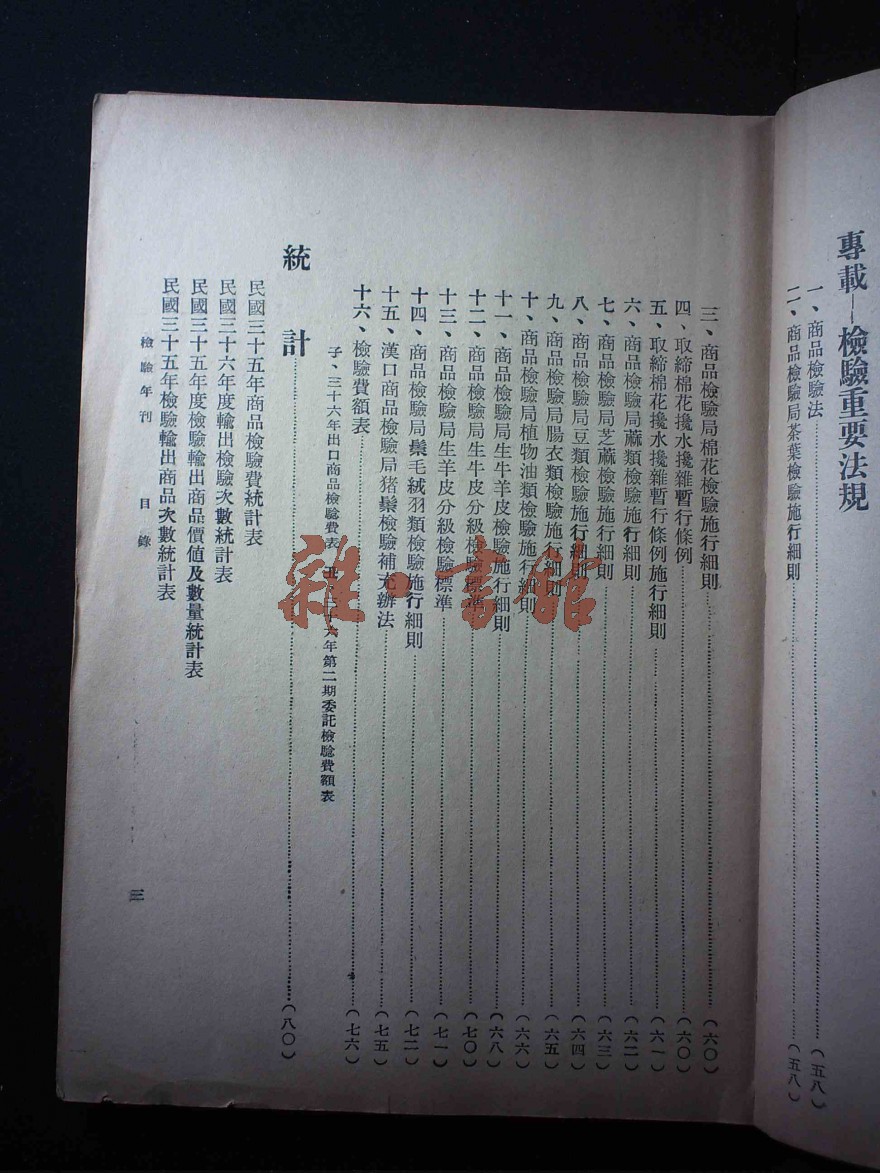 專載—檢驗重要法規
一、商品檢驗法……（五八）
二、商品檢驗局茶葉檢驗施行細則……（五八）
三、商品檢驗局棉花檢驗施行細則……（六〇）
四、取締棉花攙水攙雜暫行條例……（六〇）
五、取締棉花攙水攙雜暫行條例施行細則……（六一）
六、商品檢驗局蔴類檢驗施行細則……（六二）
七、商品檢驗局芝蔴檢驗施行細則……（六三）
八、商品檢驗局豆類檢驗施行細則……（六四）
九、商品檢驗局腸衣類檢驗施行細則……（六五）
十、商品檢驗局植物油類檢驗施行細則……（六六）
十一、商品檢驗局生牛羊皮檢驗施行細則……（六八）
十二、商品檢驗局生牛皮分級檢驗標準……（七〇）
十三、商品檢驗局生羊皮分級檢驗標準……（七一）
十四、商品檢驗局鬃毛絨羽類檢驗施行細則……（七二）
十五、漢口商品檢驗局猪鬃檢驗補充辦法……（七五）
十六、檢驗費額表……（七六）
子、三十六年出口商品檢驗費表 丑、三十六年第二期委託檢驗費額表
統 計……（八〇）
民國三十五年商品檢驗費統計表
民國三十六年度輸出檢驗次數統計表
民國三十五年度檢驗輸出商品價値及數量統計表
民國三十五年檢驗輸出商品次數統計表
檢驗年刊 目錄
三
雜·書館